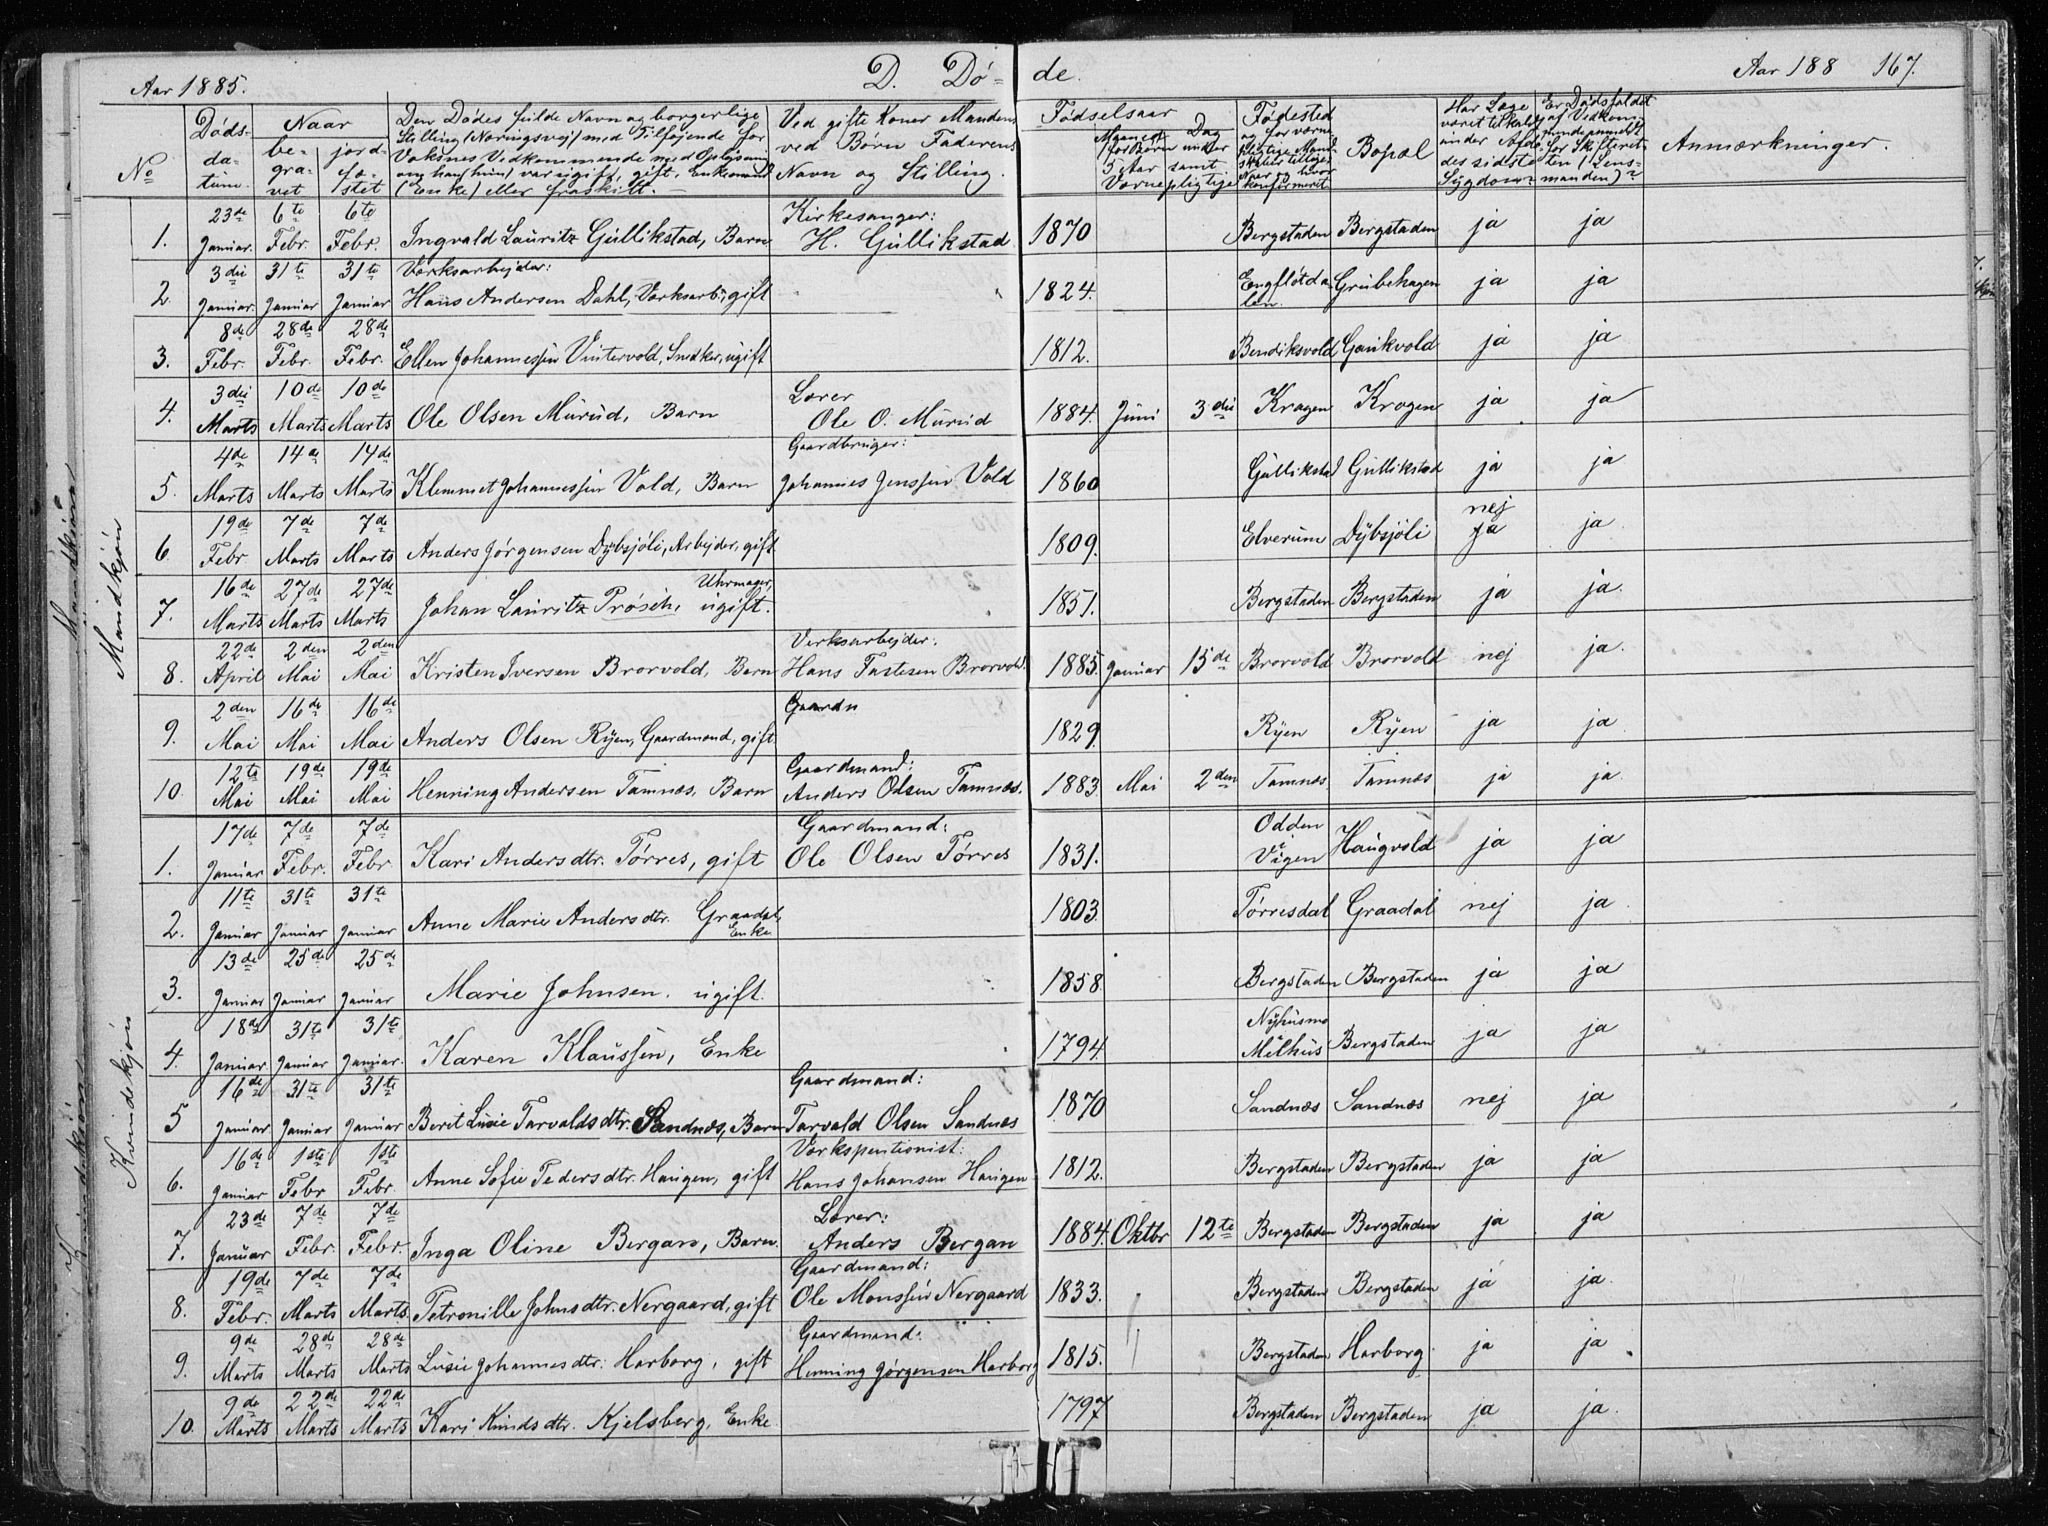 Aar 1885.
D. Dö-
de.
Aar 188
167.
No
Döds-
da-
tum.
Naar
be-
gra-
vet
jord-
fæ-
stet
Den Dödes fulde Navn og borgerlige
Stilling (Næringsvej) med Tilföjende for
Voksnes Vedkommende med Oplysning
om han (hun) var ugift, gift, Enkemand
(Enke) eller fraskilt.
Ved gifte Koner Mandens,
ved Börn Faderens
Navn og Stilling.
Födselsaar
Maaned Dag
for Börn under
5 Aar samt
Værnepligtige
Födested
og for værne-
pligtige Mand-
skaber tillige
Naar og hvor
konfirmeret
Bopæl
Har Læge
været tilkaldt
under Afdö-
des sidste
Sygdom?
Er Dödsfaldet
af Vedkom-
mende anmeldt
for Skifteret-
ten (Lens-
manden)?
Anmærkninger.
Mandkjön
1. 23de Januar. 6te Febr. 6te Febr. Ingvald Lauritz Gullikstad, Barn Kirkesanger: H. Gullikstad 1870 Bergstaden Bergstaden ja ja
2. 3die Januar. 31te Januar 31te Januar Værksarbejder: Hans Andersen Dahl, Værksarb., gift 1824. Engflötda- len. Grubehagen ja ja
3. 8de Febr. 28de Febr. 28de Febr. Ellen Johannessen Vintervold, Snedker, ugift 1812. Bendiksvold Gaukvold ja ja
4. 3die Marts 10de Marts 10de Marts Ole Olsen Murud, Barn Lærer Ole O. Murud 1884. Juni 3die Kragen Krogen ja ja
5. 4de Marts 14de Marts 14de Marts Klemmet Johannessen Vold, Barn Gaardbruger: Johannes Jenssen Vold 1860 Gullikstad Gullikstad ja ja
6 19de Febr 7de Marts 7de Marts Anders Jörgensen Dybsjöli, Arbejder, gift 1809. Elverum Dybsjöli nej ja ja
7. 16de Marts 27de Marts 27de Marts Johan Lauritz Prösch, Uhrmager, ugift. 1851. Bergstaden Bergstaden ja ja.
8. 22de April 2den Mai 2den Mai Kristen Iversen Brorvold, Barn Verksarbejder: Hans Brorvold. 1885. Januar 15de Brorvold Brorvold nej ja.
9. 2den Mai 16de Mai 16de Mai Anders Olsen Ryen, Gaardmand, gift. Gaardn 1829. Ryen Ryen ja ja
10. 12te Mai 19de Mai 19de Mai Henning Andersen Tamnæs, Barn Gaardmand: Anders Olsen Tamnæs. 1883 Mai 2den Tamnæs Tamnæs ja ja.
Kvindekjön
1. 17de Januar 7de Febr. 7de Febr. Kari Andersdtr. Törres, gift Gaardmand: Ole Olsen Törres 1831. Odden i Vigen Haugvold ja ja
2. 11te Januar 31te Januar 31te Januar Anne Marie Andersdtr. Graadal, Enke 1803. Törresdal Graadal nej ja.
3. 13de Januar 25de Januar 25de Januar Marie Johnsen. ugift. 1858. Bergstaden Bergstaden ja ja
4. 18de Januar. 31te Januar 31te Januar. Karen Klaussen, Enke 1794. Nyhusmo Mélhus Bergstaden ja ja
5 16de Januar 31te Januar 31te Januar Berit Lusie Tarvaldsdtr. Sandnæs, Barn Gaardmand: Tarvald Olsen Sandnæs 1870 Sandnæs Sandnæs nej ja
6. 16de Januar 1ste Febr 1ste Febr. Anne Sofie Pedersdtr. Haugen, gift Værkspentionist: Hans Johansen Haugen 1812. Bergstaden Bergstaden ja ja
7. 23de Januar 7de Febr. 7de Febr. Inga Oline Bergan, Barn. Lærer: Anders Bergan 1884. Oktbr 12te Bergstaden Bergstaden ja ja
8. 19de Febr. 7de Marts 7de Marts. Petronille Johnsdtr. Nergaard, gift Gaardmand: Ole Monssen Nergaard 1833. Bergstaden Bergstaden ja ja.
9. 9de Marts 28de Marts 28de Marts Lusie Johannesdtr. Harborg, gift Gaardmand: Henning Jörgensen Harborg 1815. Bergstaden Harborg. ja ja
10. 9de Marts 22de Marts 22de Marts Kari Knudsdtr. Kjelsberg, Enke 1797 Bergstaden Bergstaden ja ja.
Mandkjön
Kvindekjön